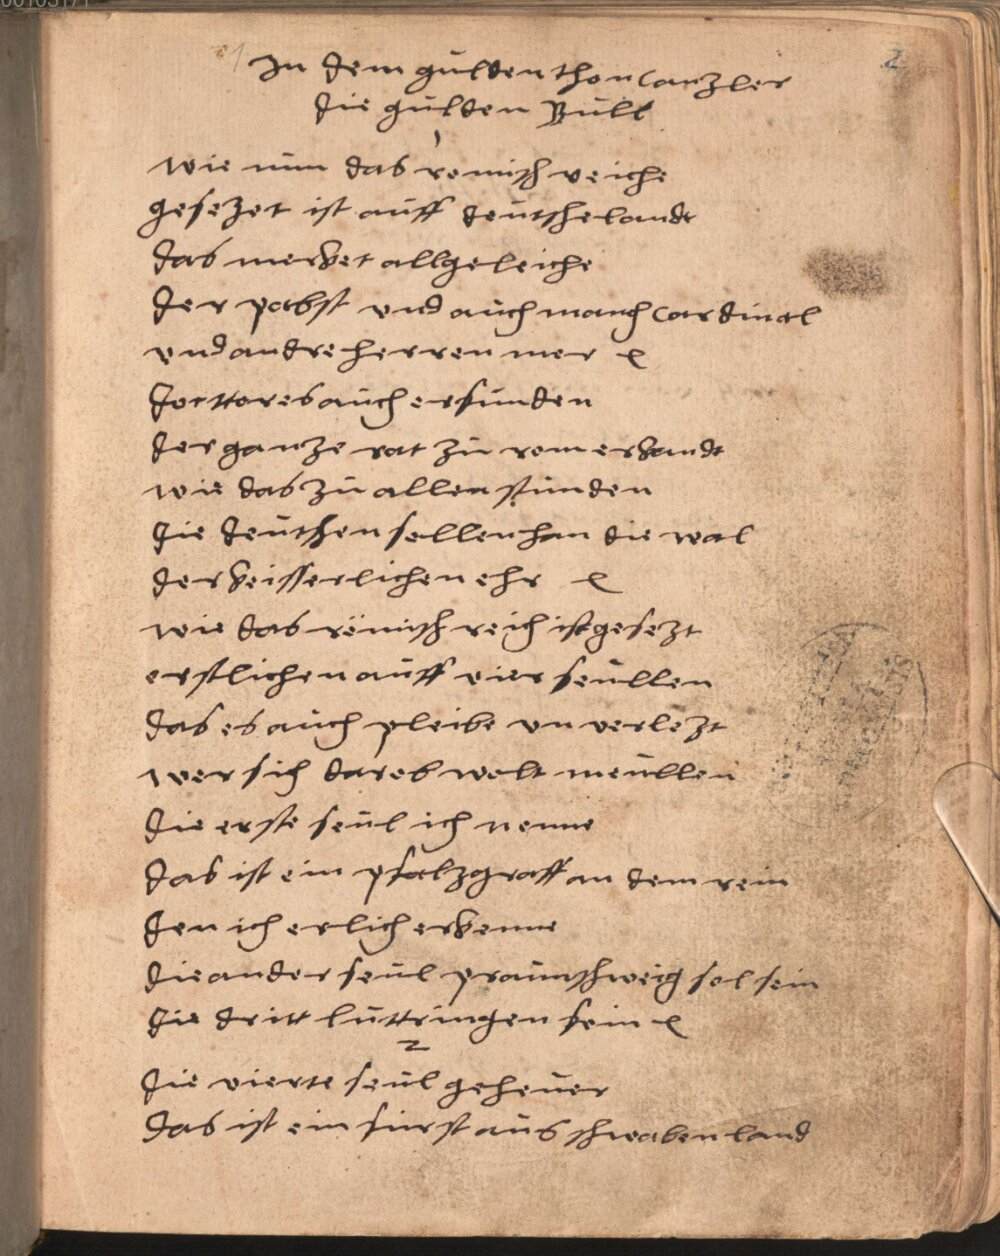 00103171
1
2
In dem gulden thon Canzler
die gulden Bull
1
Wie nun das romisch reiche
gesezet ist auff deutsche landt
das mercket allgeleiche
der pabst und auch manch Cardinal
und andre herren mer
Docttores auch erfunden
der ganze rat zu rom erkandt
wie das zu allen stunden
die deutschen sollen han die wal
der keisserlichen ehr
wie das römisch reich ist gesezt
erstlichen auff vier seullen
das es auch pleibe unverlezt
wer sich darob wolt meullen
die erste seul ich nenne
das ist ein pfalzgraff an dem rein
den ich erlich erkenne
die ander seul praunschweig sol sein
die dritt luttringen fein
2
die vierte seul geheuer
das ist ein furst aus schwaben land